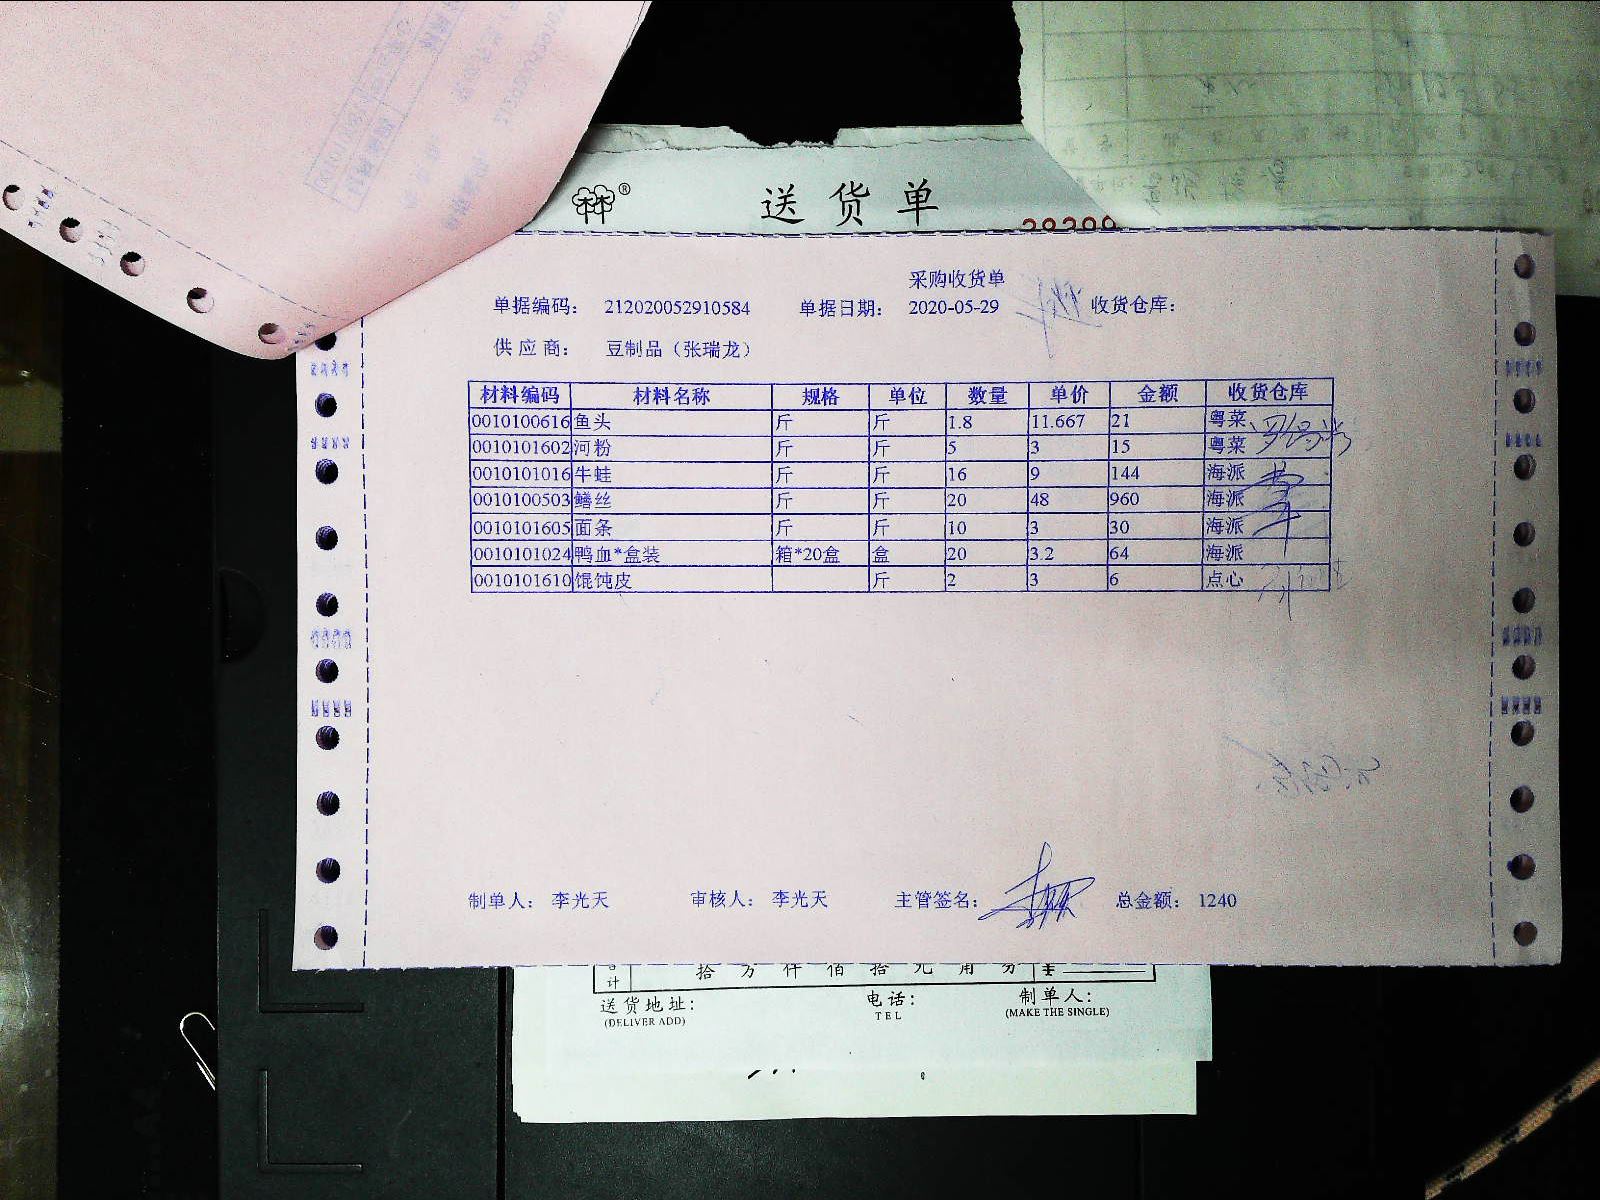 送货单
采购收货单
单据编码： 212020052910584 单据日期： 2020-05-29 收货仓库：
供应商： 豆制品（张瑞龙）
材料编码 材料名称 规格 单位 数量 单价 金额 收货仓库
0010100616 鱼头 斤 斤 1.8 11.667 21 粤菜
0010101602 河粉 斤 斤 5 3 15 粤菜
0010101016 牛蛙 斤 斤 16 9 144 海派
0010100503 鳝丝 斤 斤 20 48 960 海派
0010101605 面条 斤 斤 10 3 30 海派
0010101024 鸭血*盒装 箱*20盒 盒 20 3.2 64 海派
0010101610 馄饨皮 斤 2 3 6 点心
制单人： 李光天 审核人： 李光天 主管签名： 总金额： 1240
计 拾 万 仟 佰 拾 元 角 分
送货地址： 电话： 制单人：
(DELIVER ADD) TEL (MAKE THE SINGLE)